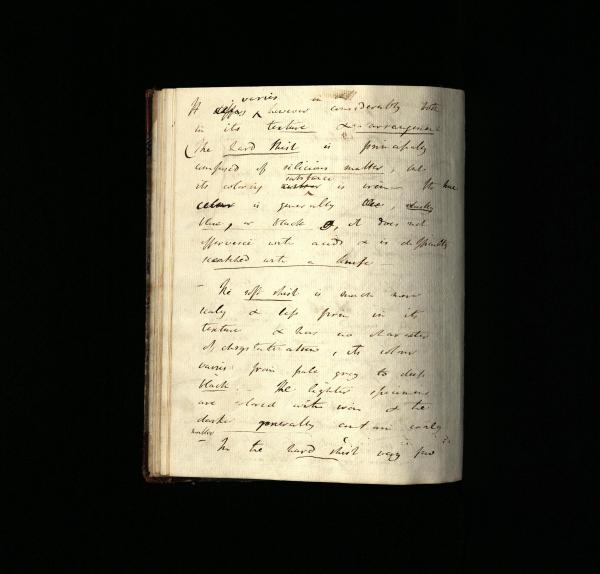 varies in
It differs however considerably both
in its texture & arrangement
The hard shist is principally
composed of silicious matter, but
substance
its coloring matter is iron – the hue
colour is generally blue, dusky
blue, or black, it does not
effervesce with acids & is difficultly
scratched with a knife
– The soft shist is much more
scaly & less firm in its
texture & has no character
of chrystalization, its colour
varies from pale grey to deep
black – The lighter specimens
are colored with iron & the
darker generally contain coaly
matter
– In the hard shist very few